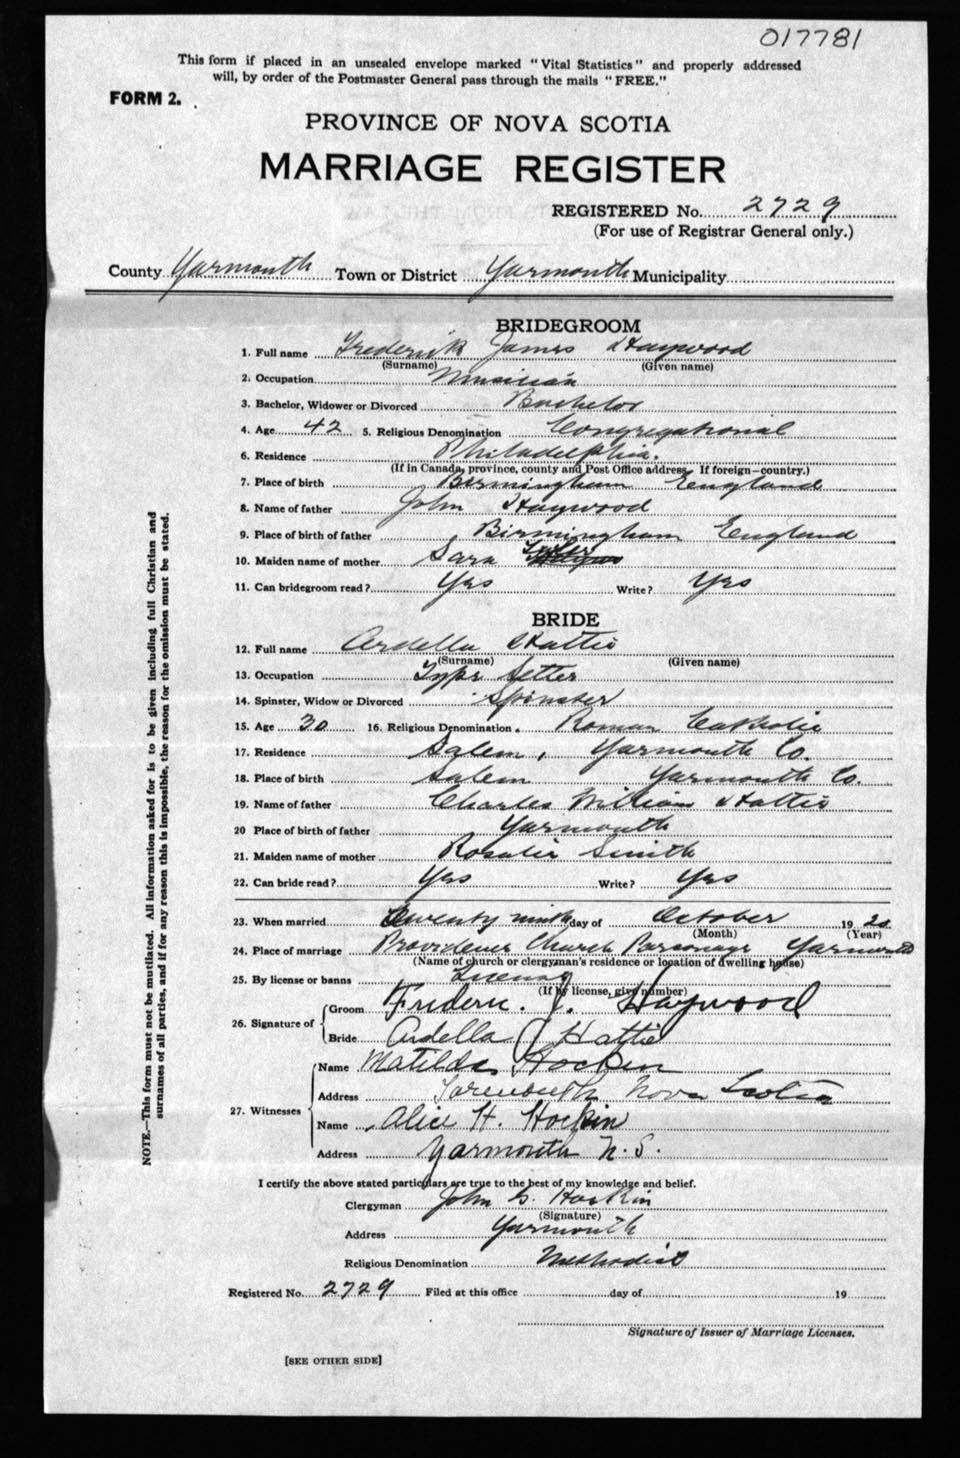 017781
This form if placed in an unsealed envelope marked "Vital Statistics" and properly addressed
will, by order of the Postmaster General pass through the mails "FREE."
FORM 2.
PROVINCE OF NOVA SCOTIA
MARRIAGE REGISTER
REGISTERED No. 2729
(For use of Registrar General only.)
County Yarmouth Town or District Yarmouth Municipality
BRIDEGROOM
1. Full name Frederick James Haywood
(Surname) (Given name)
2. Occupation Musician
3. Bachelor, Widower or Divorced Bachelor
4. Age 42 5. Religious Denomination Congregational
6. Residence Philadelphia.
(If in Canada, province, county and Post Office address. If foreign—country.)
7. Place of birth Birmingham England
8. Name of father John Haywood
9. Place of birth of father Birmingham England
10. Maiden name of mother Sara
11. Can bridegroom read? Yes Write? Yes
BRIDE
12. Full name Ardella Hattie
(Surname) (Given name)
13. Occupation Type Setter
14. Spinster, Widow or Divorced Spinster
15. Age 30 16. Religious Denomination Roman Catholic
17. Residence Salem, Yarmouth Co.
18. Place of birth Salem Yarmouth Co.
19. Name of father Charles William Hattie
20 Place of birth of father Yarmouth
21. Maiden name of mother Rosalie Smith
22. Can bride read? Yes Write? Yes
23. When married Twenty ninth day of October 19 20
(Month) (Year)
24. Place of marriage Providence Church Parsonage Yarmouth
(Name of church or clergyman's residence or location of dwelling house)
25. By license or banns License
(If by license, give number)
26. Signature of Groom Frederic. J. Haywood
Bride Ardella J Hattie
27. Witnesses Name Matilda Hockin
Address Yarmouth Nova Scotia
Name Alice H. Hockin
Address Yarmouth N.S.
I certify the above stated particulars are true to the best of my knowledge and belief.
Clergyman John G. Hockin
(Signature)
Address Yarmouth
Religious Denomination Methodist
Registered No. 2729 Filed at this office day of 19
Signature of Issuer of Marriage Licenses.
[SEE OTHER SIDE]
NOTE.—This form must not be mutilated. All information asked for is to be given including full Christian and
surnames of all parties, and if for any reason this is impossible, the reason for the omission must be stated.